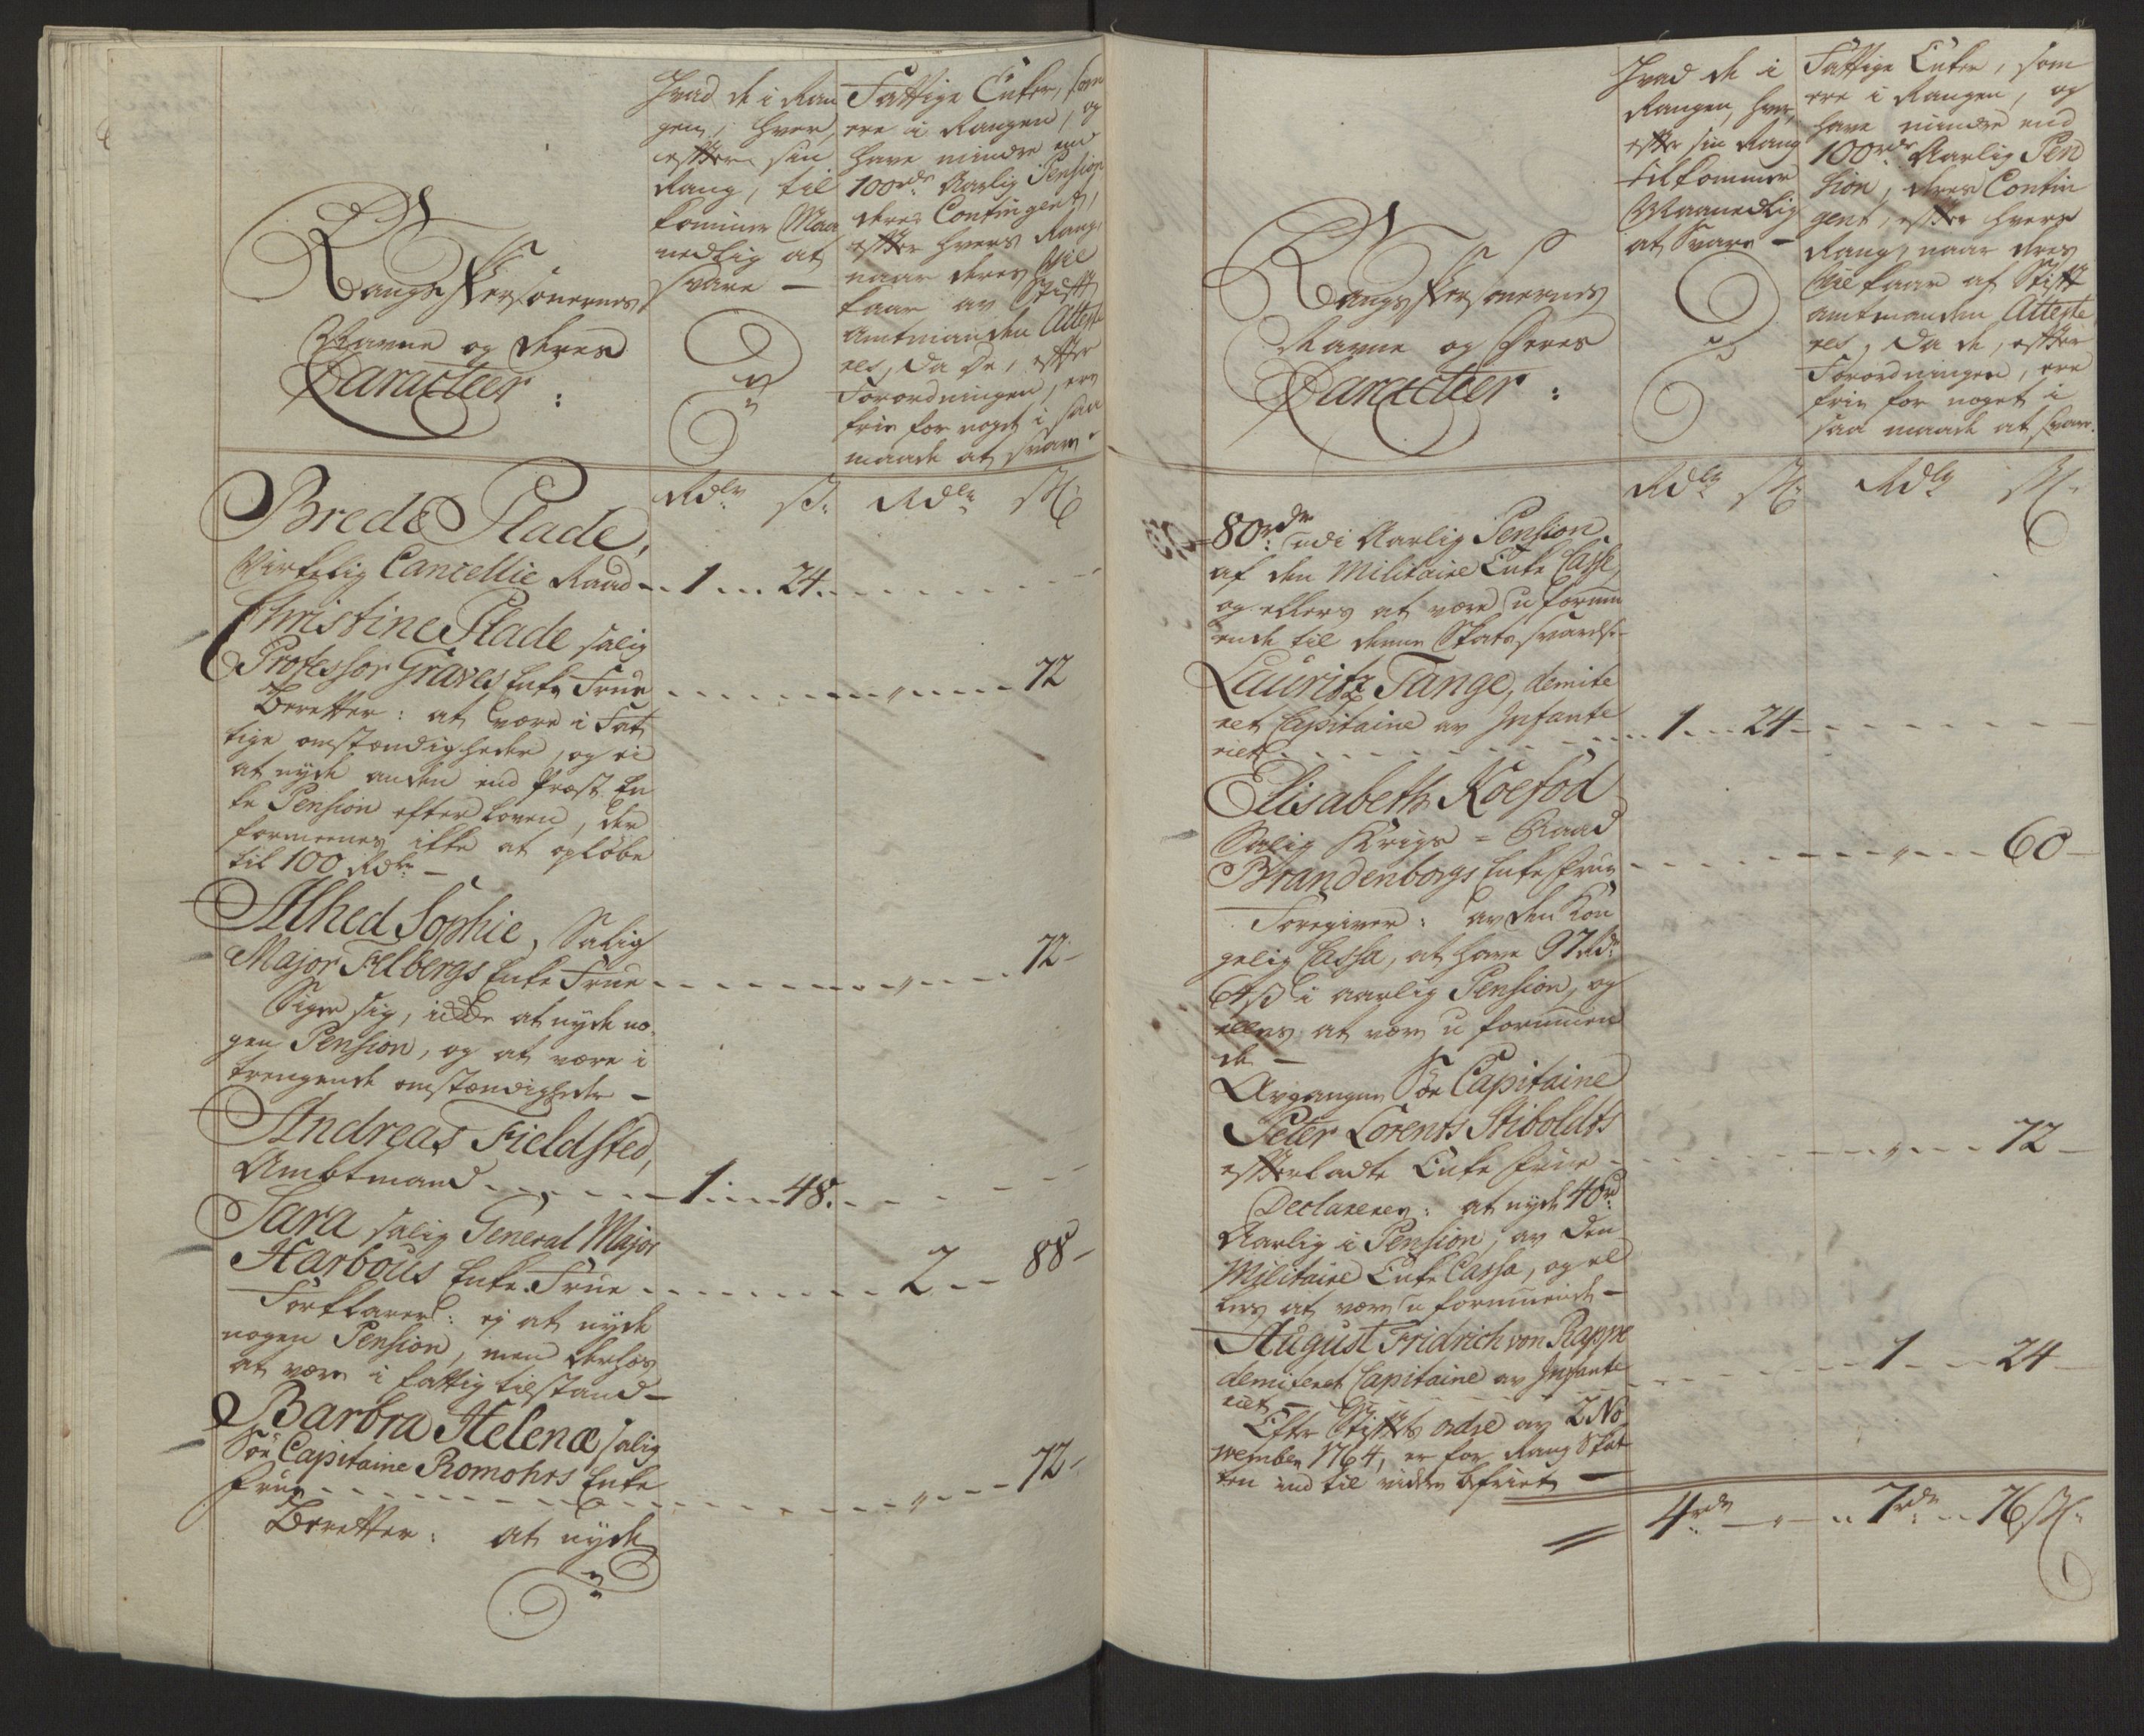 Rangs Personernes
Navne og deres
Caracteer :
Hvad de i Ran
gen, hver,
effter sin
Rang, til
kommer Maa
nedlig at
svare —
Fattige Enker, som
ere i Rangen, og
have mindre end
100rdr Aarlig Pension
deres Contingent,
effter hvers Rang,
naar deres Vil
kaar av Stifft
amtmanden Atteste
res, da de, effter
Forordningen, ere
frie for noget i saa
maade at svare
Rdlr ß. Rdlr ß
Brede Plade,
Virkelig Cancellie Raad 1 24.
Christine Plade salig
Professor Graves Enke Frue 72
Beretter: at være i Fat
tige omstændigheder, og ei
at nyde anden end Præst En
ke Pension efter Loven, der
formeenes ikke at opløbe
til 100 Rdlr —
Alhed Sophie, Salig
Major Felbergs Enke Frue 72
Siger sig, icke at nyde no
gen Pension, og at være i
trengende omstændigheder —
Andreas Fieldsted,
Ambtmand 1 48.
Sara salig General Major
Harbous Enke Frue 2 88
Forklarer: ej at nyde
nogen Pension, men derhos
at være i fattig tilstand —
Barbra Helenæ salig
Söe Capitaine Romohrs Enke
Frue 72
Beretter: at nyde
Rangs Personernes
Navne og Deres
Caracteer :
Hvad de i
Rangen, hver,
effter sin Rang
tilkommer
Maanedlig
at Svare —
Fattige Enker, som
ere i Rangen, og
have mindre end
100rdr Aarlig Pen
sion, deres Contin
gent, effter hvers
Rang, naar deres
Vilkaar af Stifft
amtmanden Atteste
res, da de, effter
Forordningen, ere
frie for noget i
saa maade at svare.
Rdlr ß. Rdlr ß.
80rdr udi Aarlig Pension
af den Militaire Enke Casse,
og ellers at være u formu
ende til denne Skats svarelse
Lauritz Tange, demite
ret Capitaine av Infante
riet 1 24
Elisabeth Koefod
Salig Krigs = Raad
Brandenborgs Enke Frue 60
Foregiver: av den Kon
gelig Cassa, at have 97 rdr
64 ß i aarlig Pension, og
ellers at være u formuen
de —
Avgangne Söe Capitaine
Peter Lorents Stiboldts
effterladte Enke Frue 72
Declarerer: at nyde 40rd
Aarlig i Pension, av den
Militaire Enke Cassa, og el
lers at være u formuende —
August Fridrich von Rappe
demiteret Capitaine av Infante
riet — 1 24
Efter Stiffts ordre av 2 No
wember 1764, er for Rang Skat
ten ind til videre befriet —
4rdr 7rdr 76 ß.